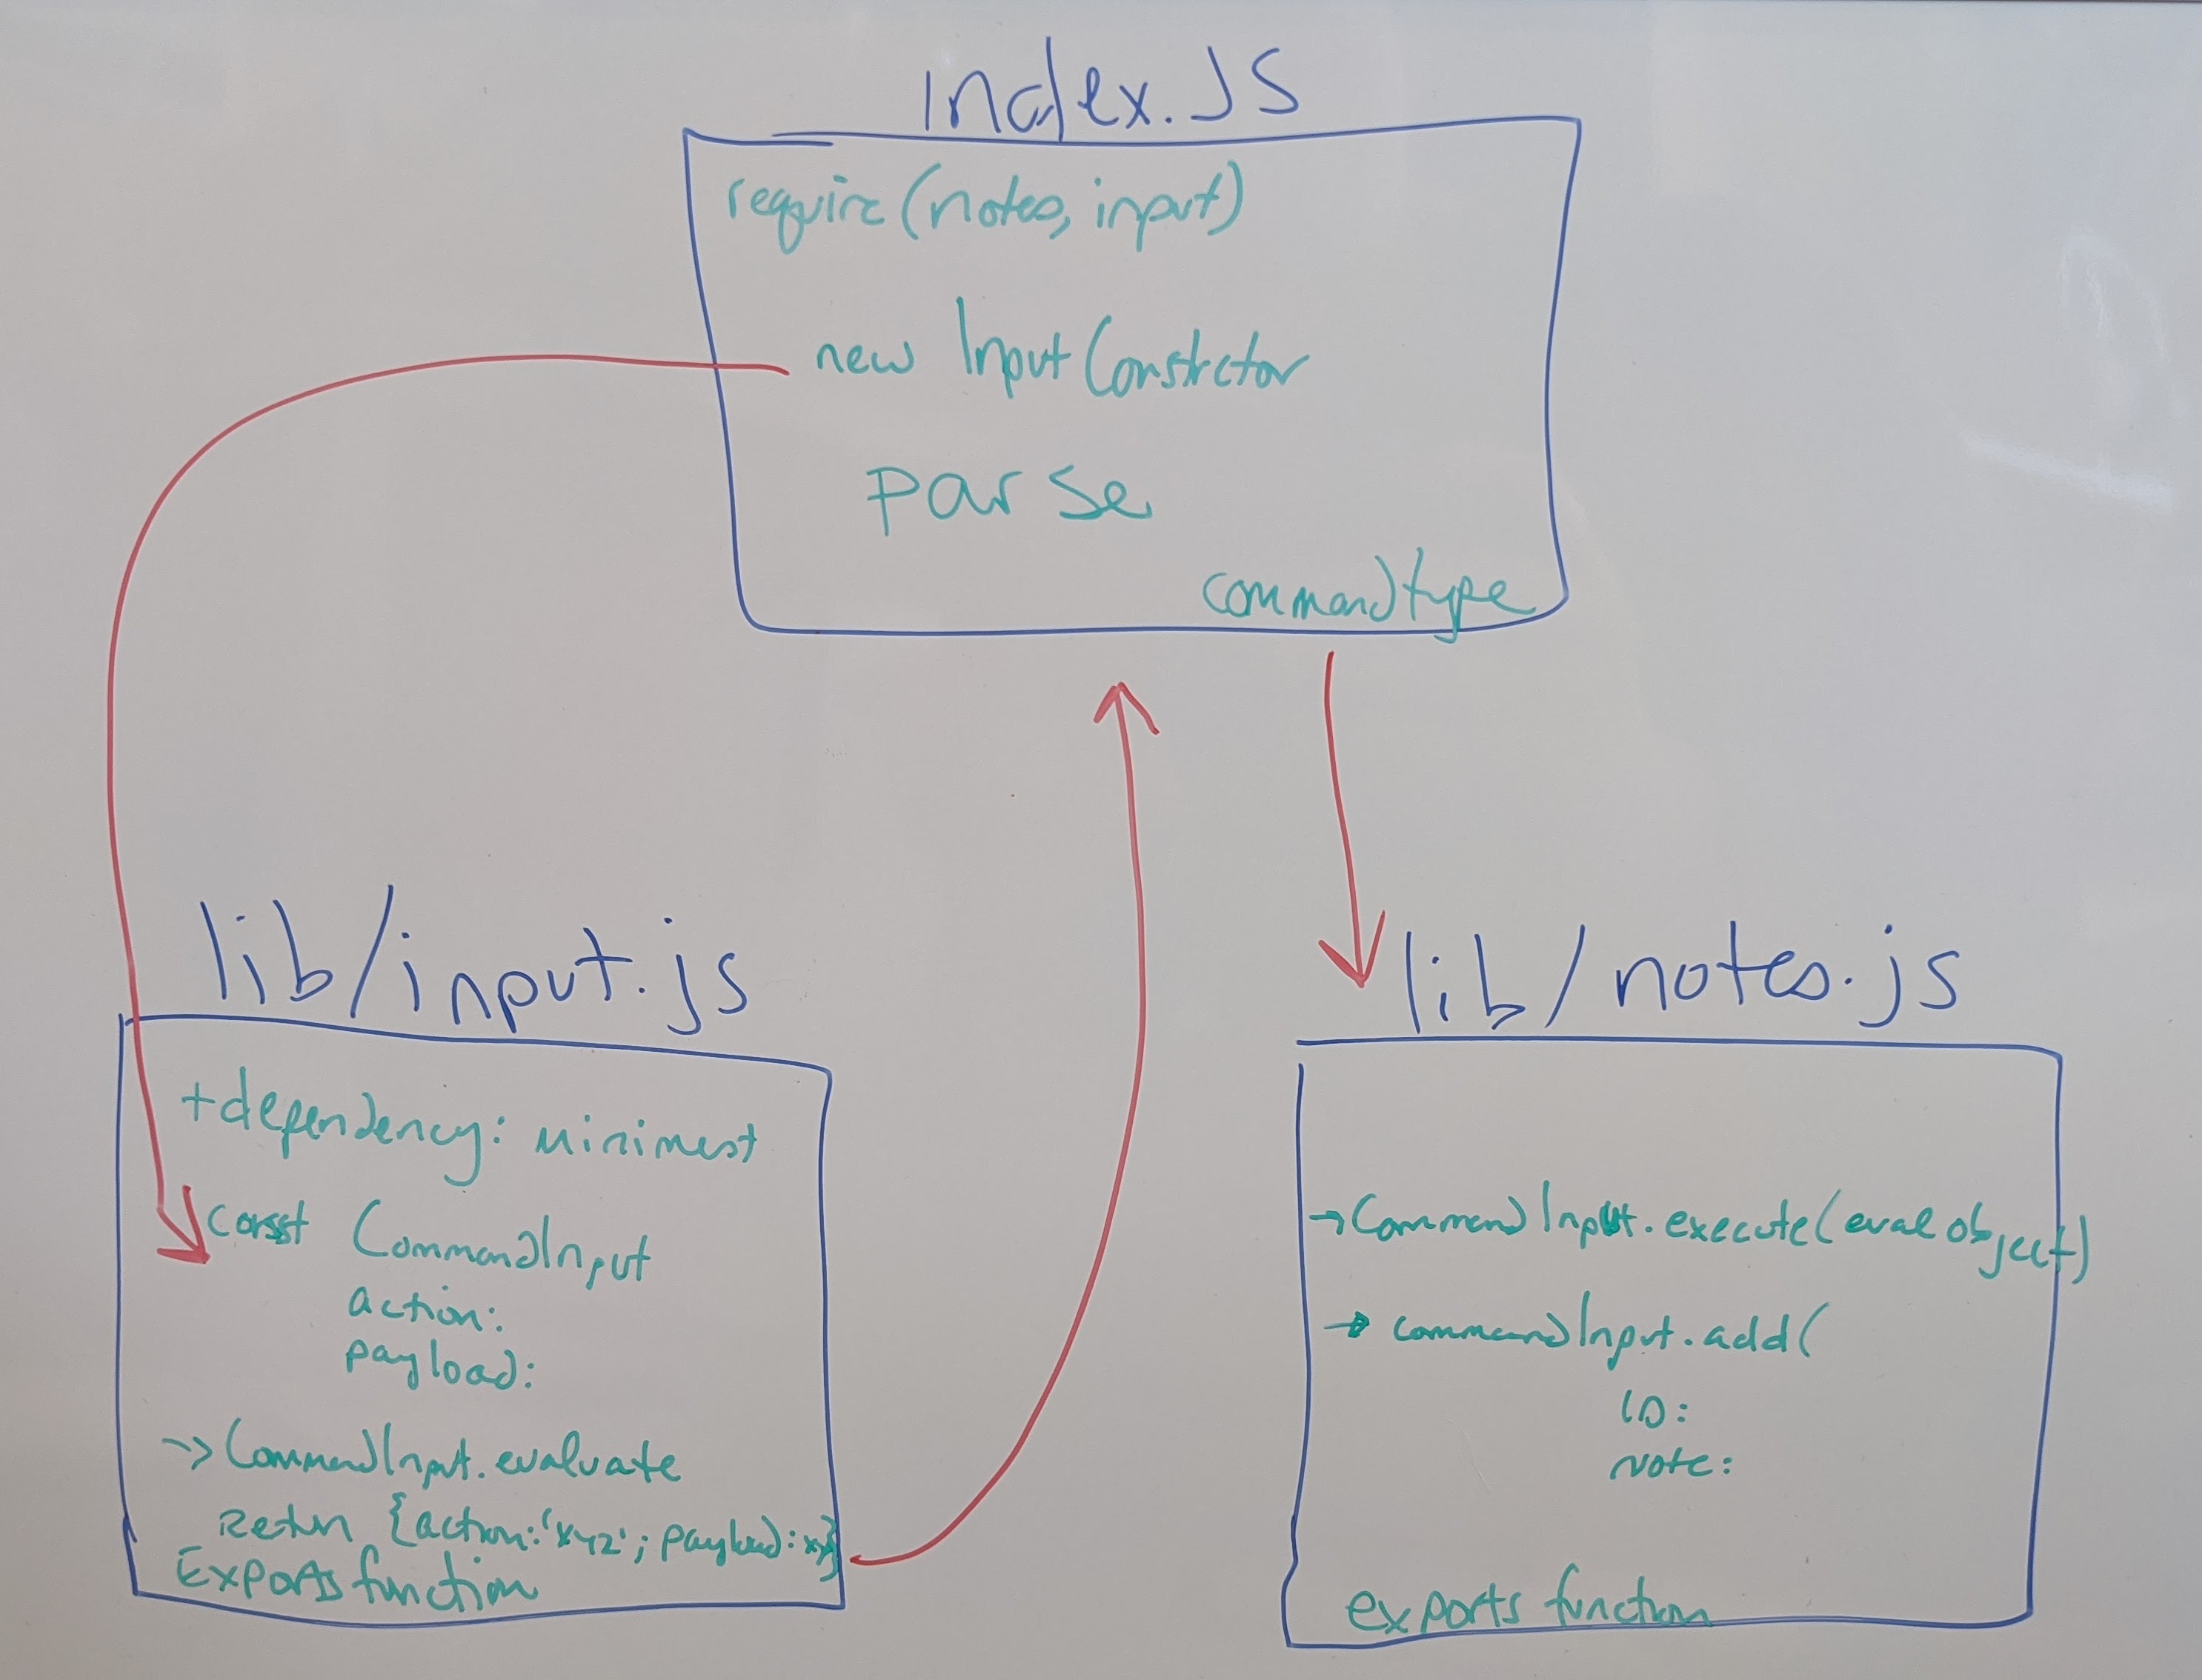 Index.JS
require(notes, input)
new InputConstrctor
parse
command type
lib/input.js
+dependency: minimest
const CommandInput
action:
payload:
->> CommandInput.evaluate
Return {action: 'xyz'; payload: xy}
Exports function
lib/notes.js
→ CommandInput.execute(eval object)
→ commandInput.add(
ID:
note:
exports function